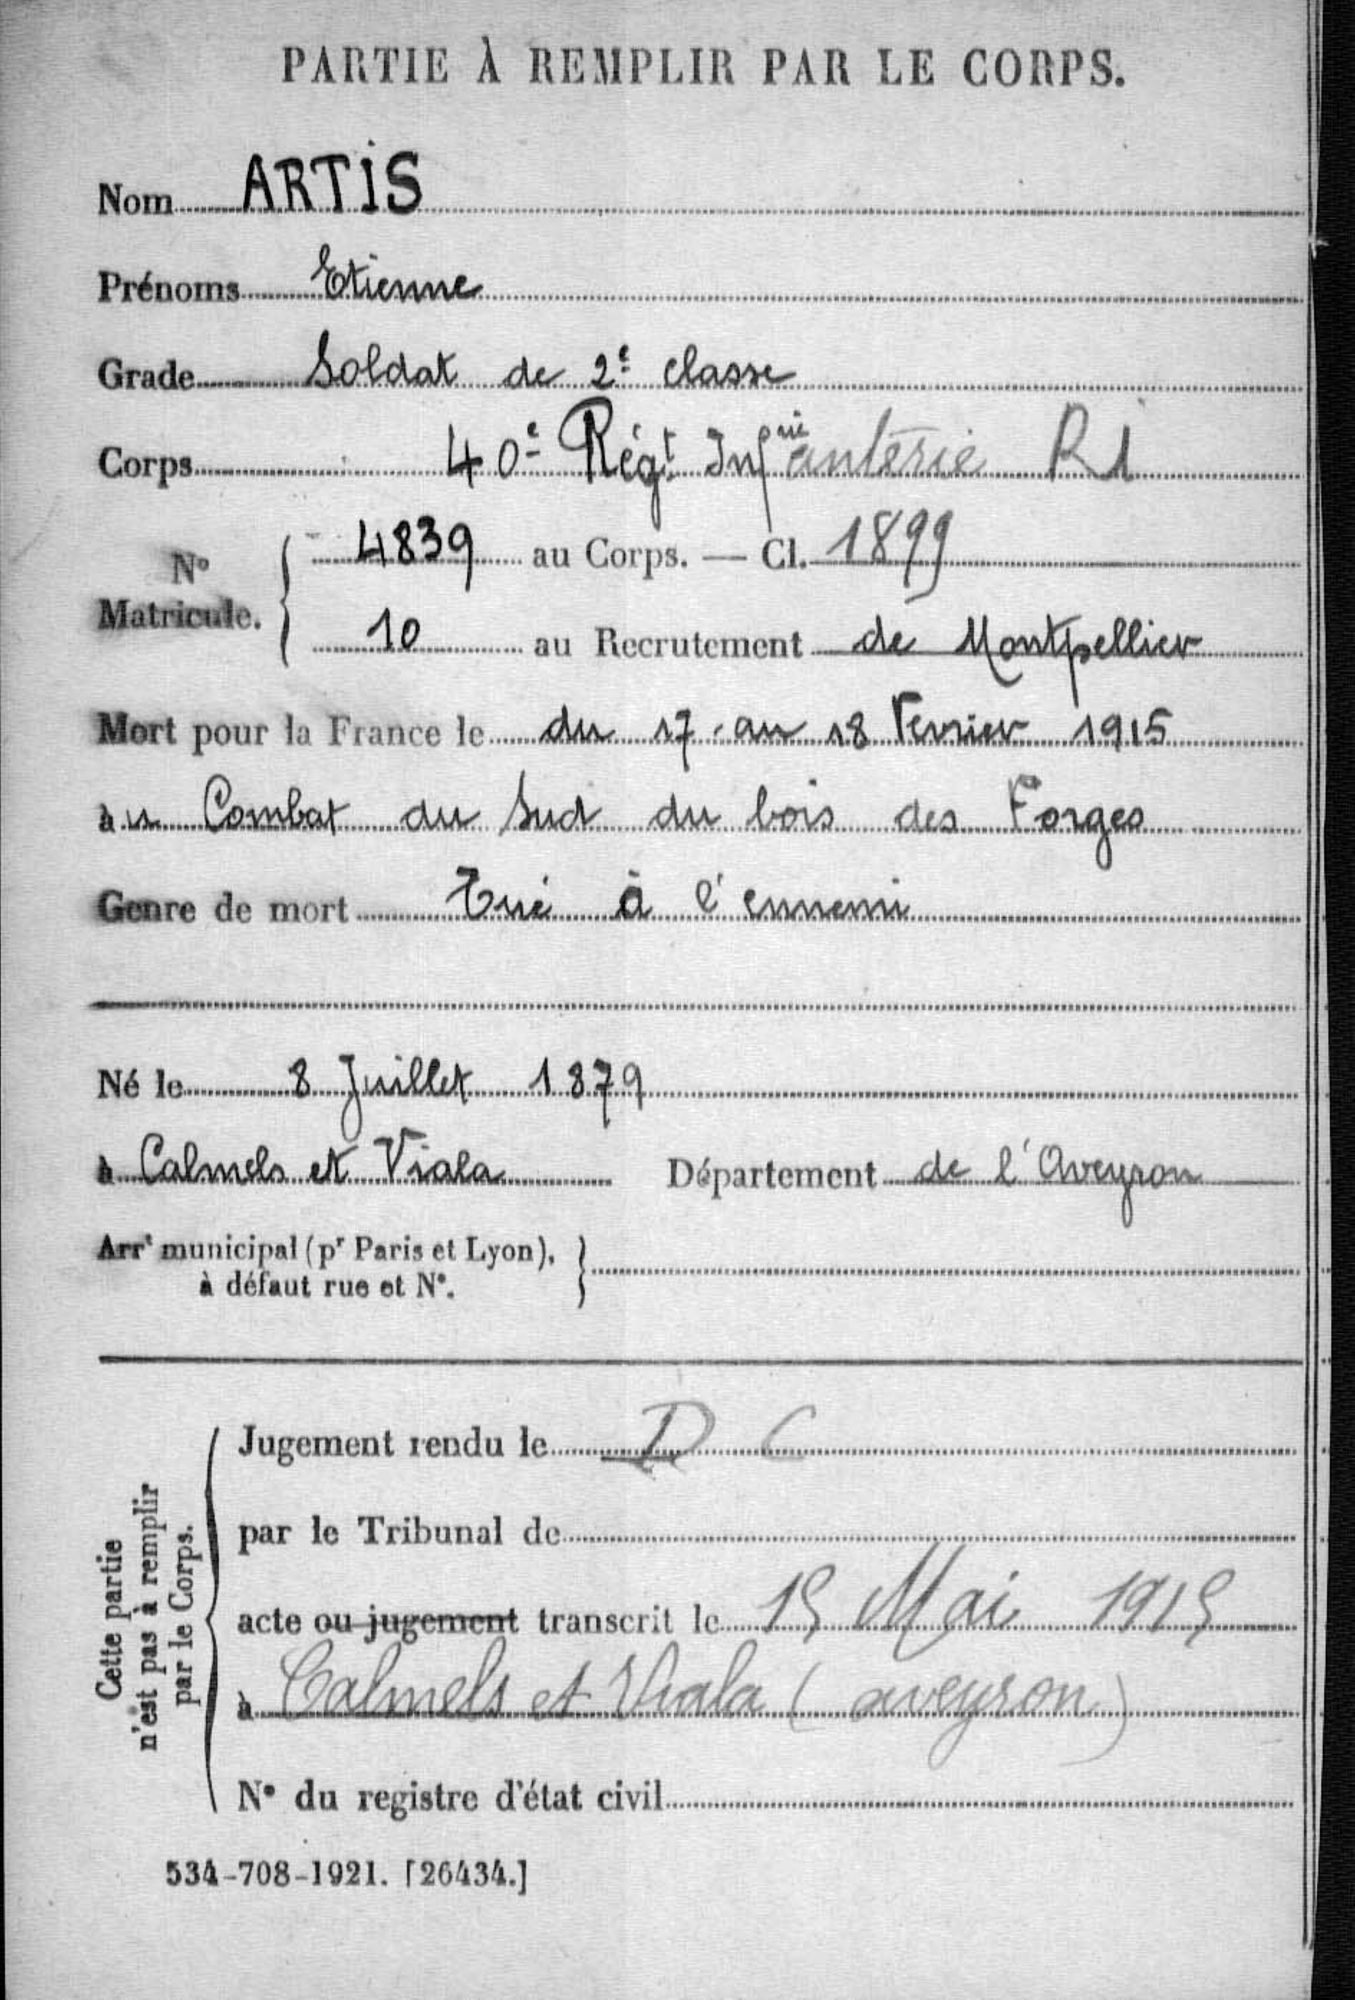 PARTIE À REMPLIR PAR LE CORPS.
Nom ARTIS
Prénoms Etienne
Grade Soldat de 2e classe
Corps 40e Régt Infrie anterie RI
No Matricule. { 4839 au Corps. — Cl. 1899
10 au Recrutement de Montpellier
Mort pour la France le du 17 au 18 Fevrier 1915
au Combat du Sud du bois des Forges
Genre de mort Tué à l'ennemi
Né le 8 Juillet 1879
à Calmels et Viala Département de l'Aveyron
Arrt municipal (pr Paris et Lyon), à défaut rue et No. }
Cette partie n'est pas à remplir par le Corps.
Jugement rendu le D C
par le Tribunal de
acte ou jugement transcrit le 15 Mai 1915
à Calmels et Viala (aveyron)
No du registre d'état civil
534-708-1921. [26434.]